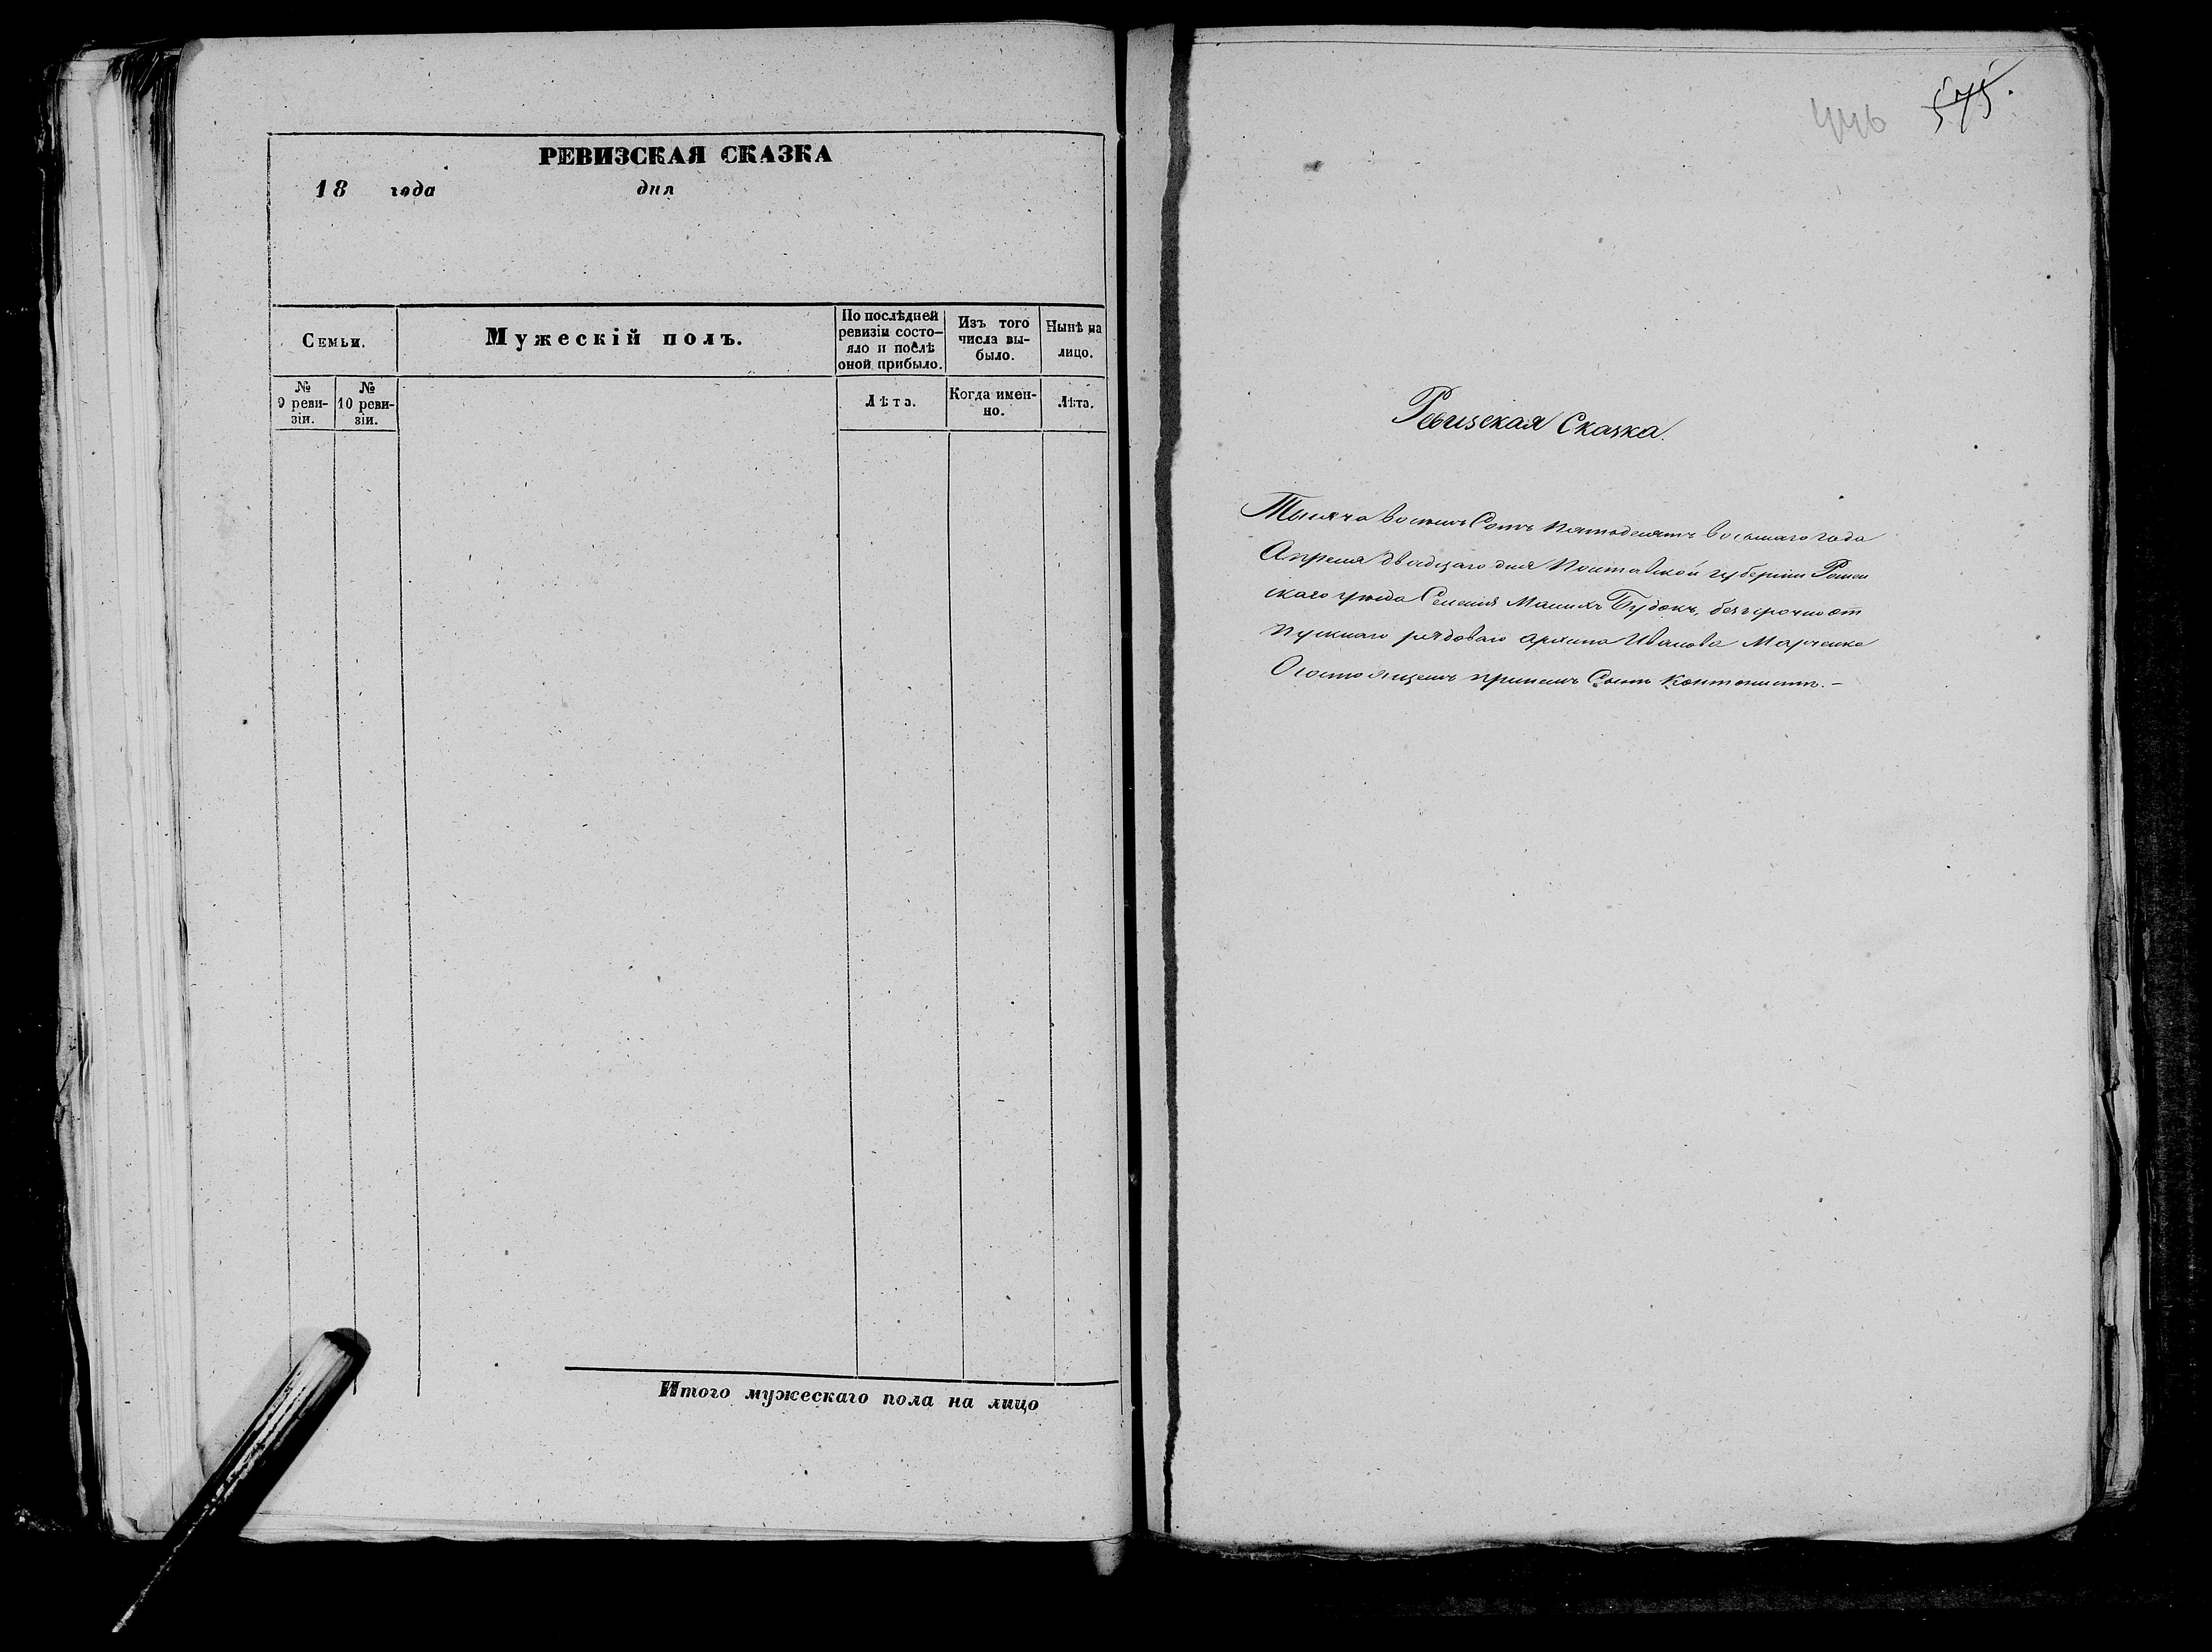 РЕВИЗСКАЯ СКАЗКА
18 года дня
Семьи.
Мужескій полъ.
По послѣдней
ревизіи состо-
яло и послѣ
оной прибыло.
Изъ того
числа вы-
было.
Нынѣ на
лицо.
№
9 реви-
зіи.
№
10 реви-
зіи.
Лѣта.
Когда имен-
но.
Лѣта.
Итого мужескаго пола на лицо
446 575.
Ревизская Сказка.
Тысяча восемь Сотъ пятьдесятъ восьмаго года
Апреля двадцаго дня Полтавской губерніи Ромен
скаго уезда Селенія Малихъ Будокъ, безсрочно от
пускнаго рядоваго Архипа Иванова Марченка
О состоящемъ при немъ Сыне Кантонисте.-